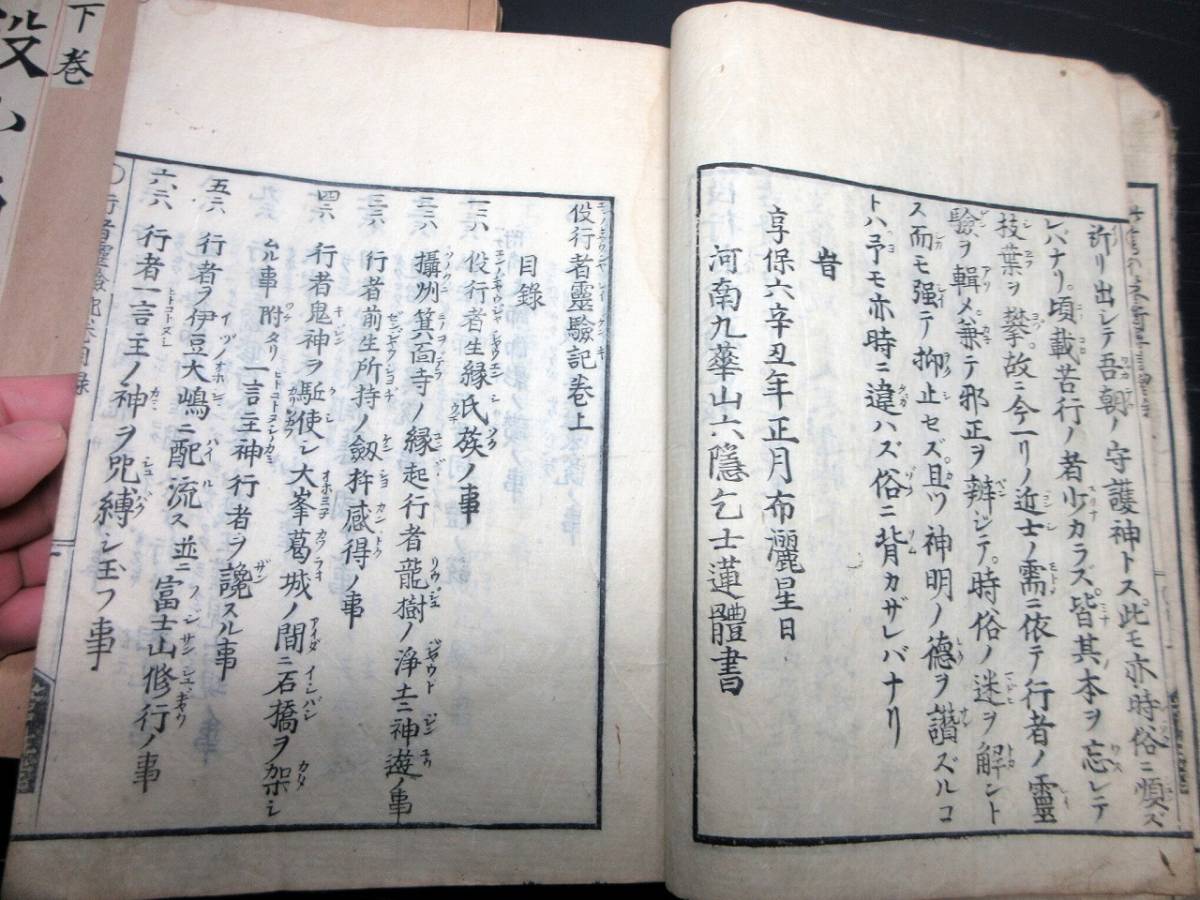 祈リ出シテ吾朝ノ守護神トス此モ亦時俗ニ順ズ
レバナリ。頃載苦行ノ者少カラズ。皆其本ヲ忘レテ
枝葉ヲ攀。故ニ今一リノ近士ノ需ニ依テ行者ノ靈
驗ヲ輯メ兼テ邪正ヲ辨シテ。時俗ノ迷ヲ解ント
ス而モ强テ抑止セズ且ツ神明ノ德ヲ讚ズルコ
トハ予モ亦時ニ違ハズ俗ニ背カザレバナリ
旹
享保六辛丑年正月布灑星日
河南九華山六隱乞士蓮體書
役行者靈驗記卷上
目錄
一六 役行者生縁氏族ノ事
二六 攝州箕面寺ノ縁起行者龍樹ノ淨土ニ神遊ノ事
三六 行者前生所持ノ劔杵感得ノ事
四六 行者鬼神ヲ駈使シ大峯葛城ノ間ニ石橋ヲ架シ
ムル事 附タリ一言主神行者ヲ讒スル事
五六 行者ヲ伊豆大嶋ニ配流ス並ニ富士山修行ノ事
六六 行者一言主ノ神ヲ咒縛シ玉フ事
〇行者靈驗記卷目錄
下巻
役